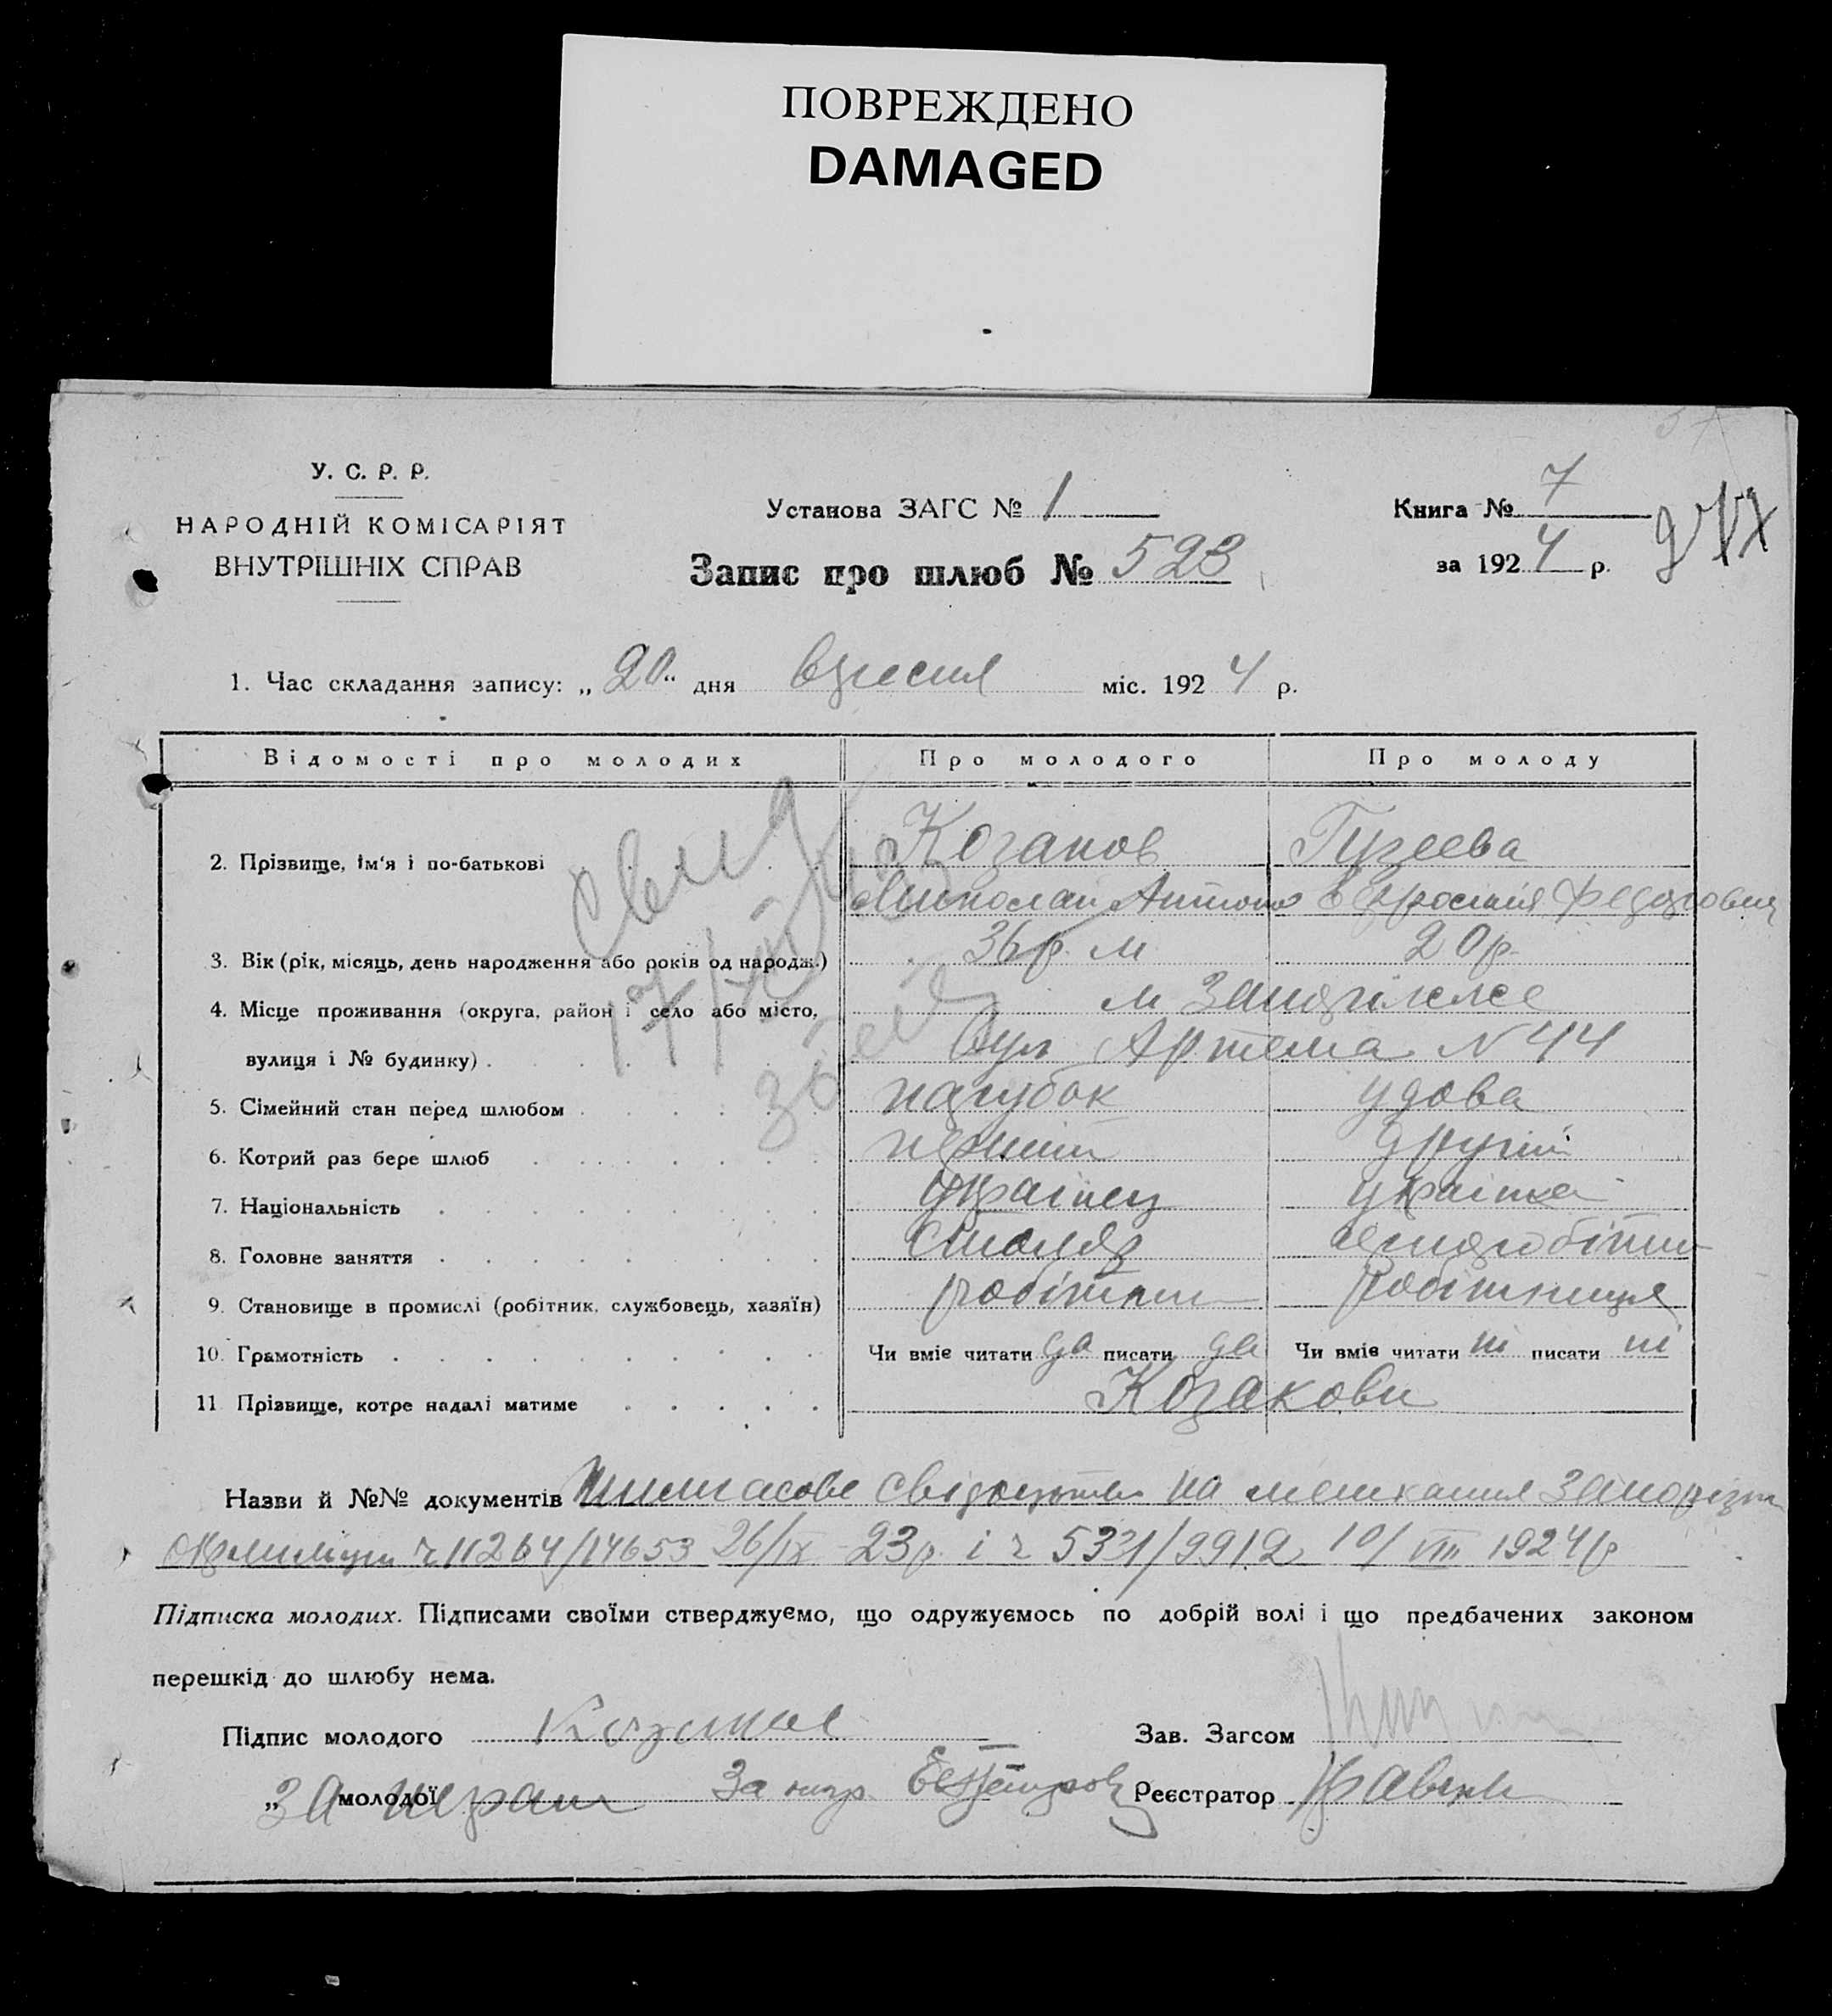 ПОВРЕЖДЕНО
DAMAGED
У. С. Р. Р.
НАРОДНІЙ КОМІСАРІЯТ
ВНУТРІШНІХ СПРАВ
Установа ЗАГС № 1
Запис про шлюб № 523
Книга № 7
за 1924 р.
1. Час складання запису: „20“ дня вересня міс. 1924 р.
Відомості про молодих Про молодого Про молоду
2. Прізвище, ім'я і по-батькові Козаков Гузеева
Антонов Федоровна
3. Вік (рік, місяць, день народження або років од народж.) 36 р. 20 р.
4. Місце проживання (округа, район і село або місто, м Запоріжже
вулиця і № будинку) . вул Артема N 44
5. Сімейний стан перед шлюбом парубок удова
6. Котрий раз бере шлюб перший другий
7. Національність українец українка
8. Головне заняття столяр
9. Становище в промислі (робітник, службовець, хазяїн) робітник робітниця
10. Грамотність Чи вміє читати да писати да Чи вміє читати ні писати ні
11 Прізвище, котре надалі матиме Козакови
Назви й №№ документів свідоцтва на мешкання
ч 11264/14653 26/IX 23 р. і ч 5331/9912 10/VIII 1924 р
Підписка молодих. Підписами своїми стверджуємо, що одружуємось по добрій волі і що предбачених законом
перешкід до шлюбу нема.
Підпис молодого
Зав. Загсом
„ молодої За
Реєстратор